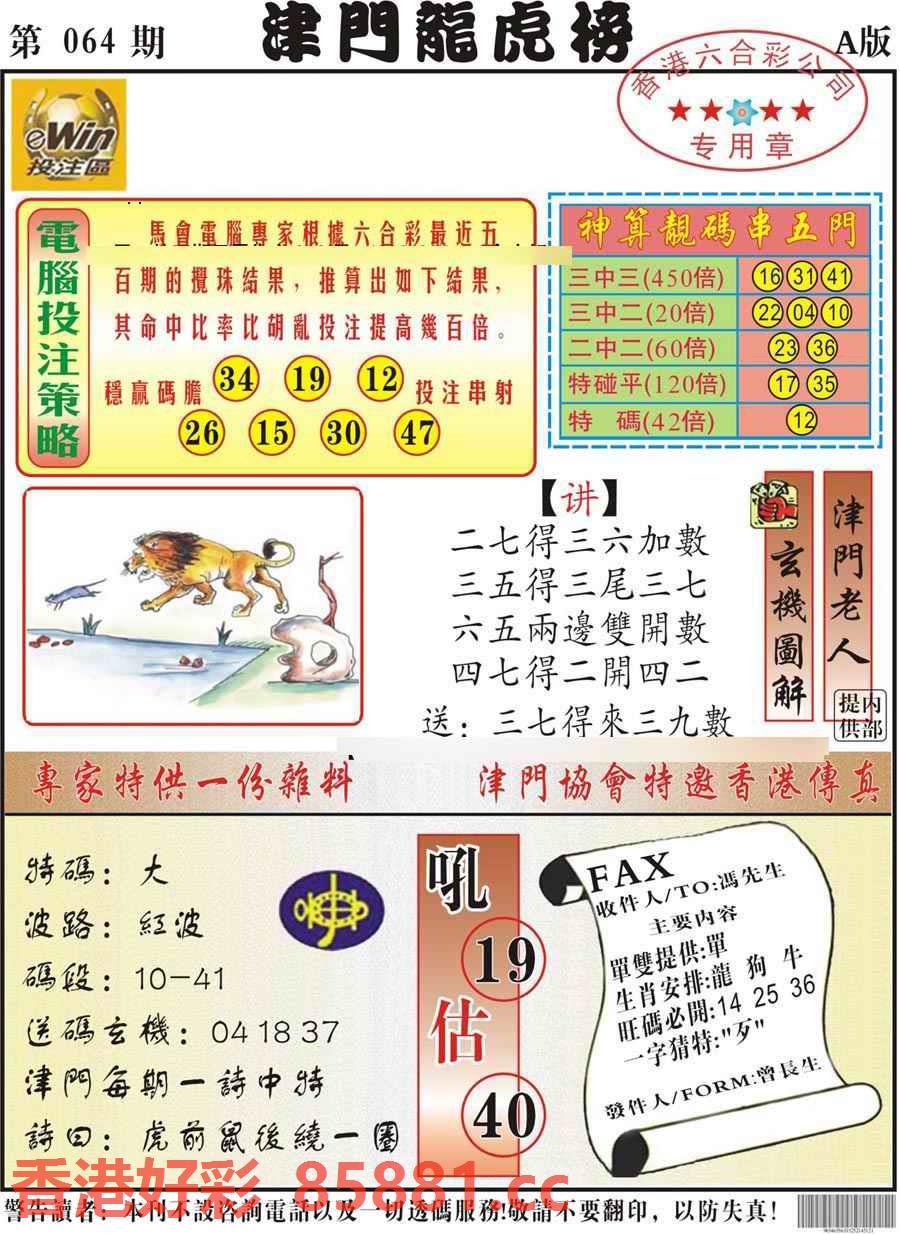 第 064 期
津門龍虎榜
A版
香港六合彩公司
专用章
eWin
投注區
電腦投注策略
馬會電腦專家根據六合彩最近五
百期的攪珠結果，推算出如下結果，
其命中比率比胡亂投注提高幾百倍。
穩贏碼膽 34 19 12 投注串射
26 15 30 47
神算靚碼串五門
三中三(450倍) 16 31 41
三中二(20倍) 22 04 10
二中二(60倍) 23 36
特碰平(120倍) 17 35
特 碼(42倍) 12
【讲】
二七得三六加數
三五得三尾三七
六五兩邊雙開數
四七得二開四二
送：三七得來三九數
玄機圖解
津門老人
内部提供
專家特供一份雜料
津門協會特邀香港傳真
特碼：大
波路：紅波
碼段：10-41
送碼玄機：04 18 37
津門每期一詩中特
詩曰：虎前鼠後繞一圈
吼
19
估
40
FAX
收件人/TO:馮先生
主要内容
單雙提供:單
生肖安排:龍 狗 牛
旺碼必開:14 25 36
一字猜特:"歹"
發件人/FORM:曾長生
香港好彩 85881.cc
警告讀者：本刊不設咨詢電話以及一切透碼服務!敬請不要翻印，以防失真!